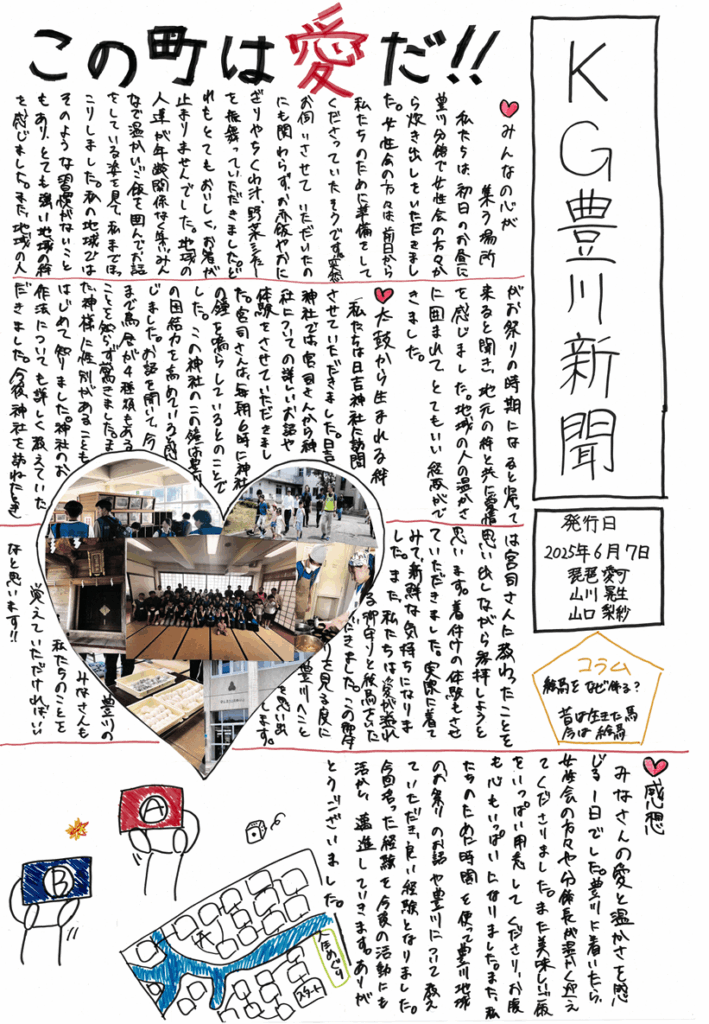 KG豊川新聞
発行日
2025年6月7日
琵琶 愛可
山川 晃生
山口 梨紗
コラム
絵馬をなぜ作る？
昔は生きた馬
今は絵馬
この町は愛だ!!
みんなの心が
集う場所
私たちは初日のお昼に
豊川分館で女性会の方々か
ら炊き出しをいただきまし
た。女性会の方々は前日から
私たちのために準備をして
くださっていたそうです。突然
お伺いさせていただいたの
にも関わらず、お赤飯やおに
ぎりやちくわ汁、野菜ジュレー
を振舞っていただきました。ど
れもとてもおいしく、お箸が
止まりませんでした。地域の
人達が年齢関係なく集い、みん
なで温かいご飯を囲んでお話
をしている姿を見て、私までほっ
こりしました。私の地域では
そのような習慣がないこと
もあり、とても強い地域の絆
を感じました。また、地域の人
がお祭りの時期になると戻って
来ると聞き、地元の絆と共に愛情
を感じました。地域の人の温かさ
に囲まれて、とてもいい経験がで
きました。
太鼓から生まれる絆
私たちは日吉神社に訪問
させていただきました。日吉
神社では宮司さんから神
社についての詳しいお話や
体験をさせていただきまし
た。宮司さんは毎朝6時に神社
の鐘を鳴らしているとのことで
した。この神社のこの鐘は豊川
の団結力を高めていると感
じました。お話を聞いて、今
まで鳥居が4種類もある
ことを知らず驚きました。ま
た、神様に性別があることも
はじめて知りました。神社のお
作法についても詳しく教えていた
だきました。今後神社を訪れたとき
は宮司さんに教わったことを
思い出しながら参拝しようと
思います。着付けの体験もさせ
ていただきました。実際に着て
みて、新鮮な気持ちになりま
した。また、私たちは愛が溢れ
る御守りと絵馬をいた
だきました。この御守
りを見る度に
豊川へのこと
を思い出
します。
豊川の
みなさんも
私たちのことを
覚えていただければいい
なと思います!!
感想
みなさんの愛と温かさを感
じる1日でした。豊川に着いたら、
女性会の方々や分館長が温かく迎え
てくださりました。また美味しいご飯
をいっぱい用意してくださり、お腹
も心もいっぱいになりました。また、私
たちのために時間を使って豊川地域
のお祭りのお話や豊川について教え
ていただき、良い経験となりました。
今回培った経験を今後の活動にも
活かし、邁進していきます。ありが
とうございました。
A
B
人生めぐり
スタート